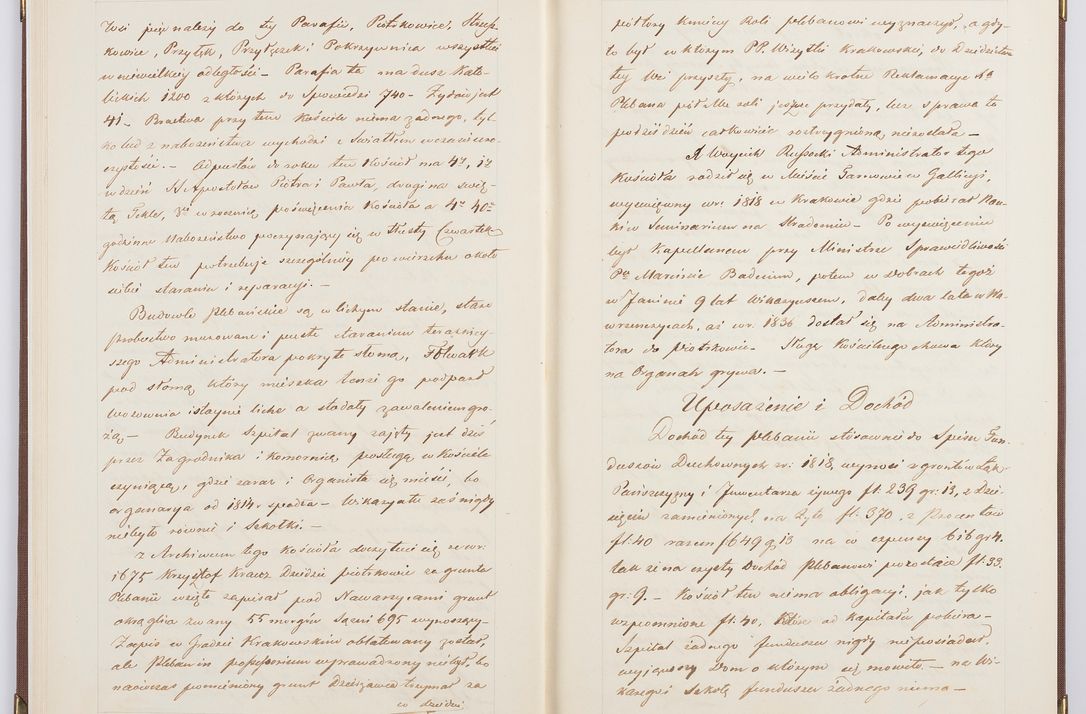 Wsi pięć należy do tey Parafii, Piotrkowice, Krusz-
kowice, Przyłęk, Przyłęczek i Pokrzywnica wszystkie
w niewielkiey odległości – Parafia ta ma dusz Kato-
lickich 1200 z których do Spowiedzi 740 – Żydów jest
41 – Bractwa przy tem Kościele niema żadnego, tyl-
ko lud z nabożeństwa wychodzi z światłem
– Odpustów do roku ten Kościół ma 4y, 1y
w dzień SS Apostołów Piotra i Pawła, drugi na świę-
tą Teklę, 3ci w rocznicę poświęcenia Kościoła a 4y 40to
godzinne Nabożeństwo poczynające się w Tłusty Czwartek
Kościół ten potrzebuje szczególniey po wierzchu około
siebie starania i reparacyi. –
Budowle Plebańskie są w lichym stanie, stare
probostwo murowane i puste staraniem teraźniey-
szego Administratora pokryte słomą, Folwark
pod słomą, który mieszka tenże go podparł
Wozownia i staynie liche a stodoły zawaleniem gro-
żą – Budynek Szpital zwany zajęty jest dziś
przez Zagrodnika i komornicę posługę w Kościele
czyniącą, gdzie zaraz i Organista się mieści, bo
organarya od 1814 r spadła – Wikaryatu zaś nigdy
niebyło równie i szkółki. –
Z Archiwum tego Kościoła doczytać się że w r:
1675 Krzysztof Kracz Dziedzic Piotrkowic za grunta
Plebanii wzięte zapisał pod Nawarzycami grunt
okrąglia zwany 55 morgów Sążni 695 wynoszący –
Zapis w Grodzie Krakowskim oblatowany został,
ale Pleban in possessorium wprowadzony niebył, bo
naówczas pomieniony grunt Dzierżawca trzymał za
co dziedzic
półtory kmiecy Roli plebanowi wyznaczył, a gdy-
to był w którym PP. Wizytki Krakowskie, do Dziedzictwa
tey Wsi przyszły, na wielo krotne Reklamacye Xa
Plebana pół roli jeszcze przydały, lecz sprawa ta
podziś dzień całkowicie rozstrzygniona niezostała –
X Woyciech Russocki Administrator tego
Kościoła rodził się w Mieście Tarnowie w Gallicyi,
wyświęcony w r. 1818 w Krakowie gdzie pobierał Nau-
ki w Seminarium na Stradomiu – Po wyświęceniu
był Kapellanem przy Ministrze Sprawiedliwości
Pu Marcinie Badenim, potem w dobrach tegoż
w Janinie 9 lat Wikaryuszem, daley dwa lata w Wa-
wrzenczycach, aż w r. 1836 dostał się na Administra-
tora do Piotrkowic – Sługę Kościelnego chowa który
na Organach grywa. –
Uposażenie i Dochód
Dochód tey Plebanii stosownie do Spisu Fun-
duszów Duchownych z r: 1818, wynosi z gruntów Łąk
Pańszczyzny i Inwentarza żywego fl: 239 gr: 13, z Dzie-
sięcin zamienionych na żyto fl: 370, z Procentów
fl: 40 razem fl 649 g 13 na co expensy 616 gr 4.
tak że na czysty Dochód Plebanowi pozostaie fl: 33.
gr: 9. – Kościół ten niema obligacyi, jak tylko
wspomnione fl: 40, które od kapitału pobiera –
Szpital żadnego funduszu nigdy nieposiadał
wyjąwszy Dom o którym się mówiło – na Wi-
karego i Szkołę funduszu żadnego niema –